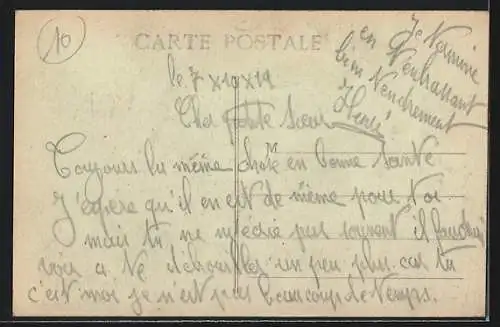 10
CARTE POSTALE
le 7 x 10 x 19
Cher petite sœur
Toujours la même chose en bonne santé
J'espère qu'il en est de même pour toi
mais tu ne m'écrie pas souvent il faudrai
voir a te débrouiller un peu plus car tu
c'est moi je n'est pas beaucoup de temps.
Je termine
en t'enbrassant
bien tendrement
Henri